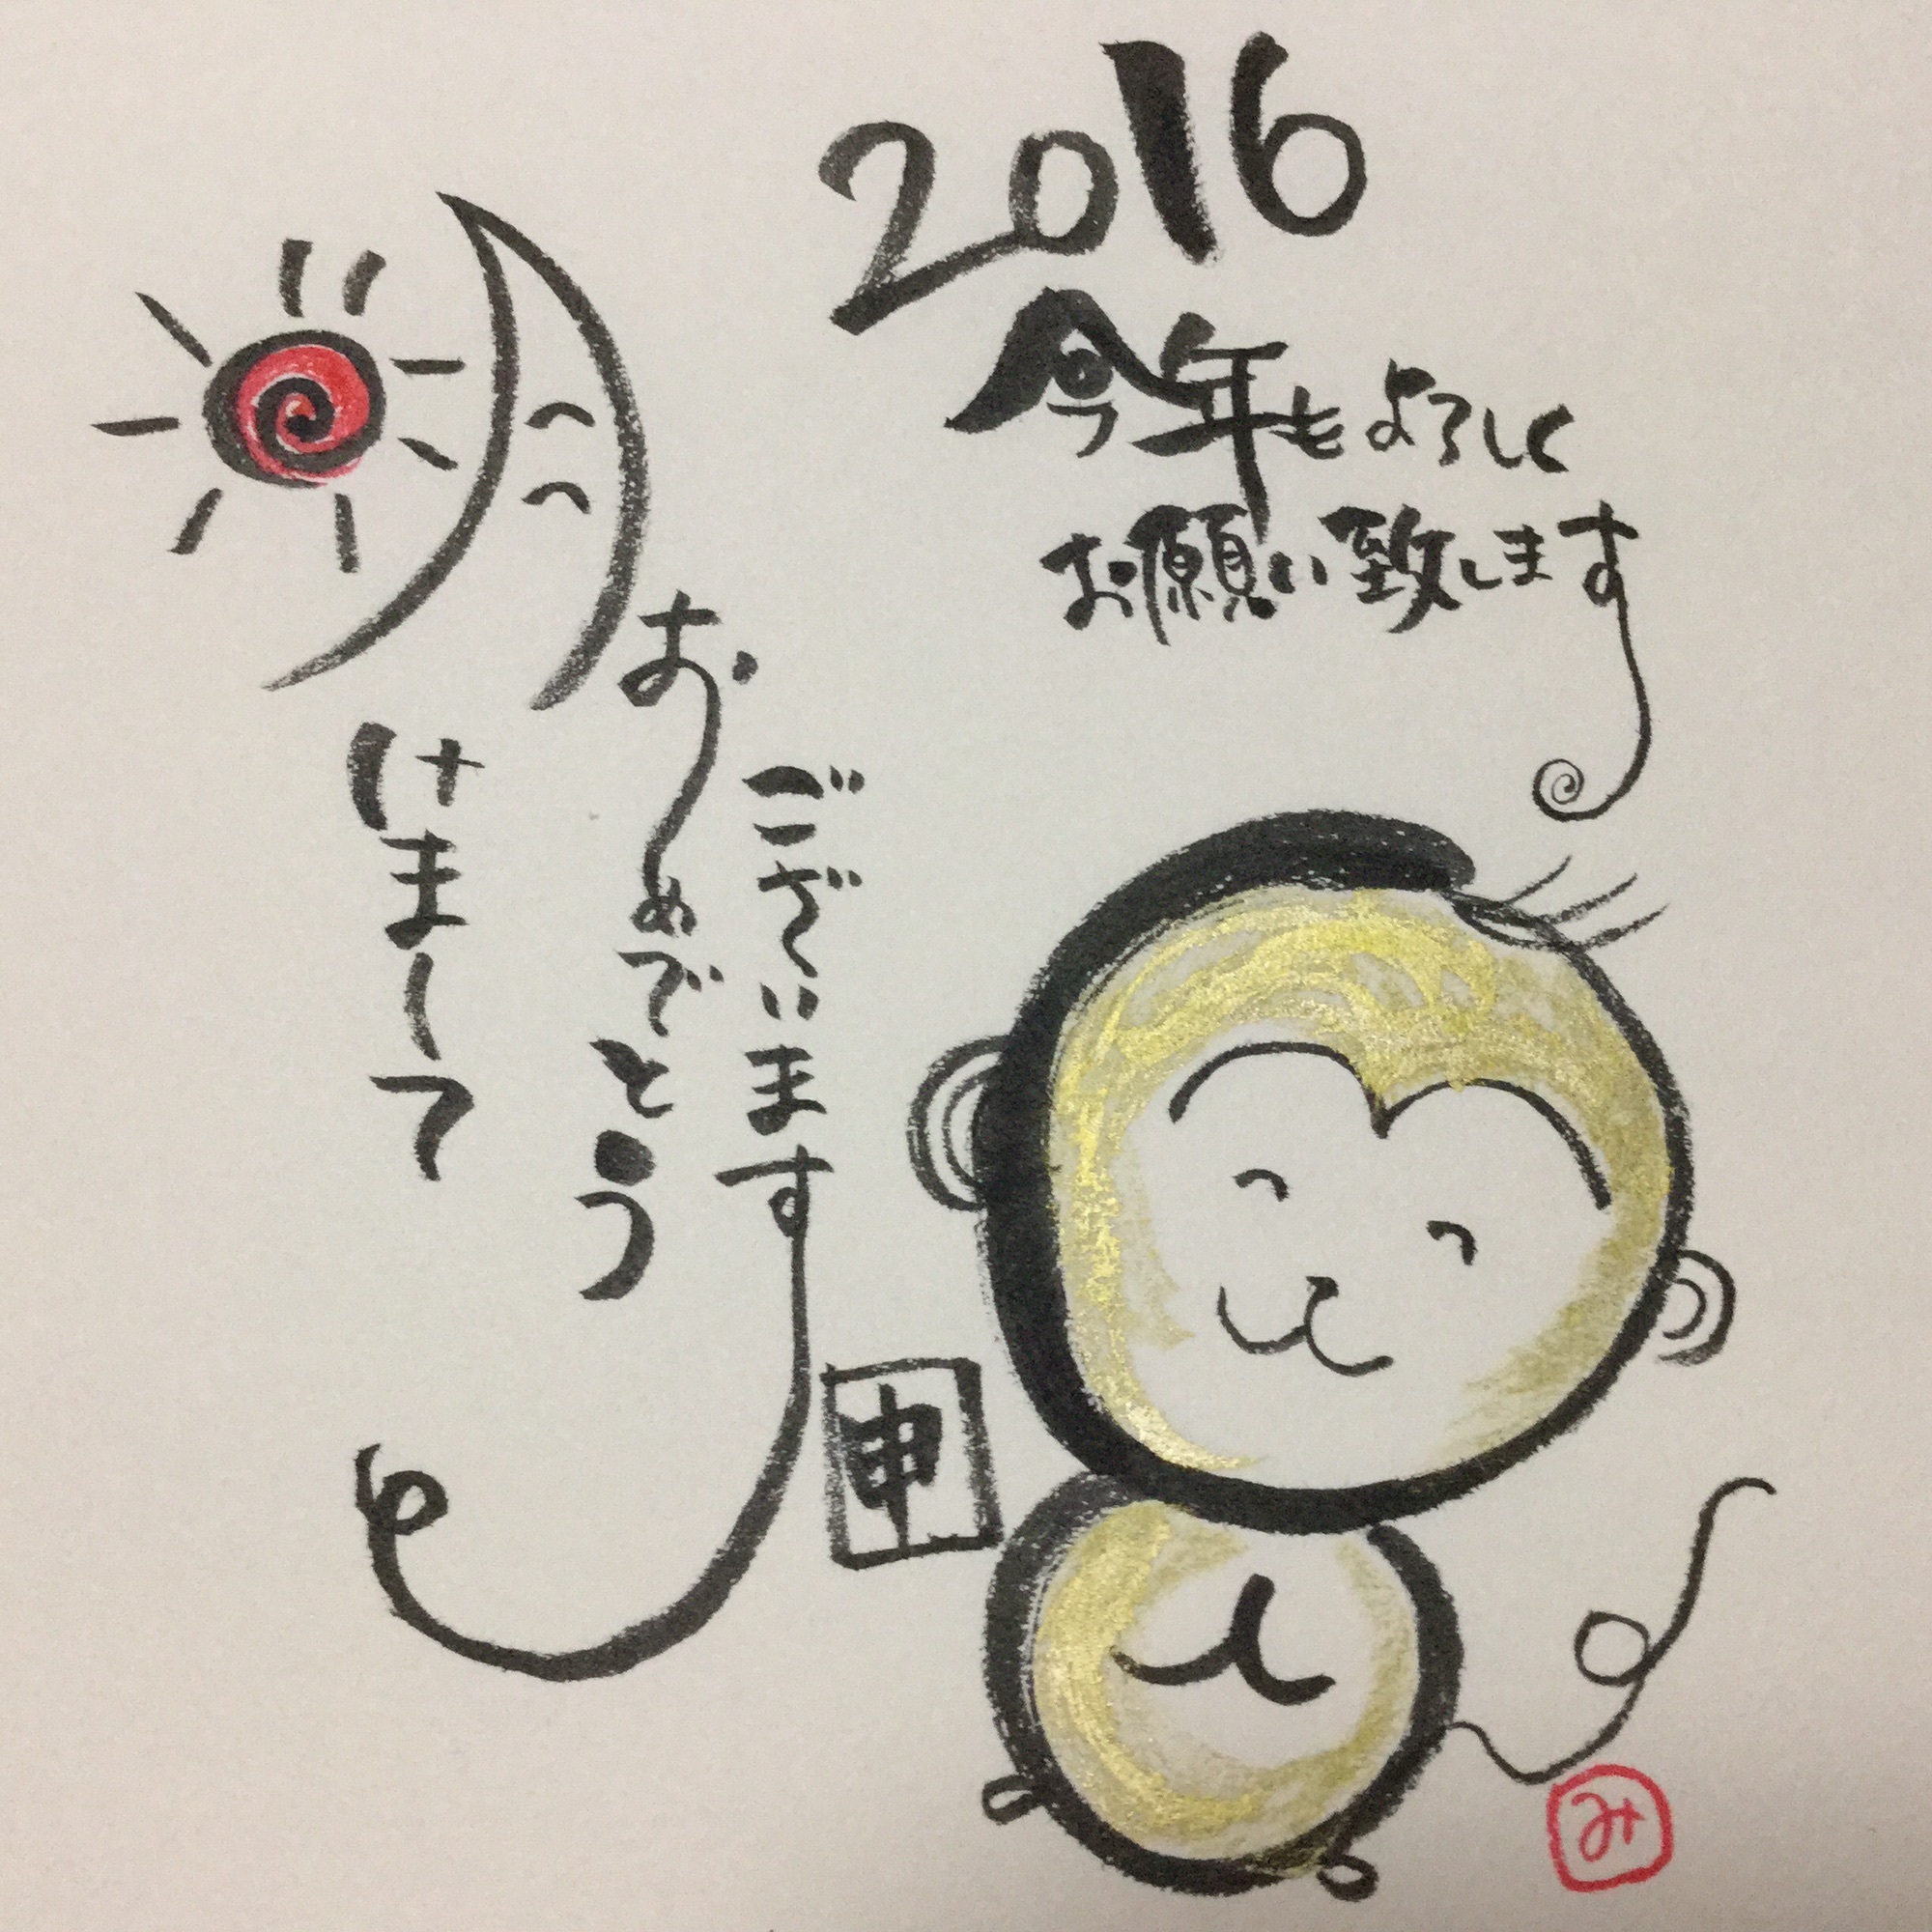 2016
今年もよろしく
お願い致します
明けまして
おめでとう
ございます
申
み